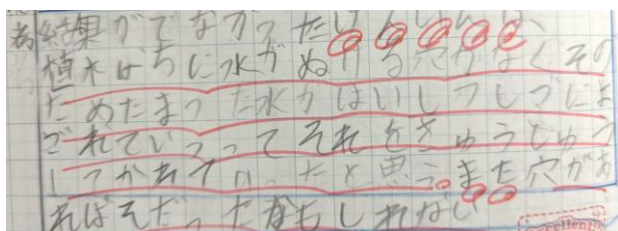 考 結果がでなかったげんいんは、
植木ばちに水がぬける穴がなくその
ためたまった水がはいしつしづによ
ごれていってそれをきゅうしゅう
してかれていったと思う。また穴があ
ればそだったかもしれない
Excellent